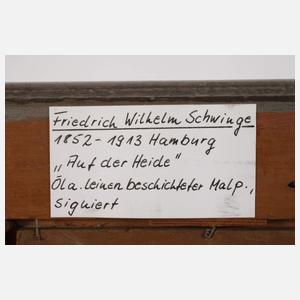 Friedrich Wilhelm Schwinge
1852-1913 Hamburg
„Auf der Heide"
Öl a. leinen beschichteter Malp.,
signiert